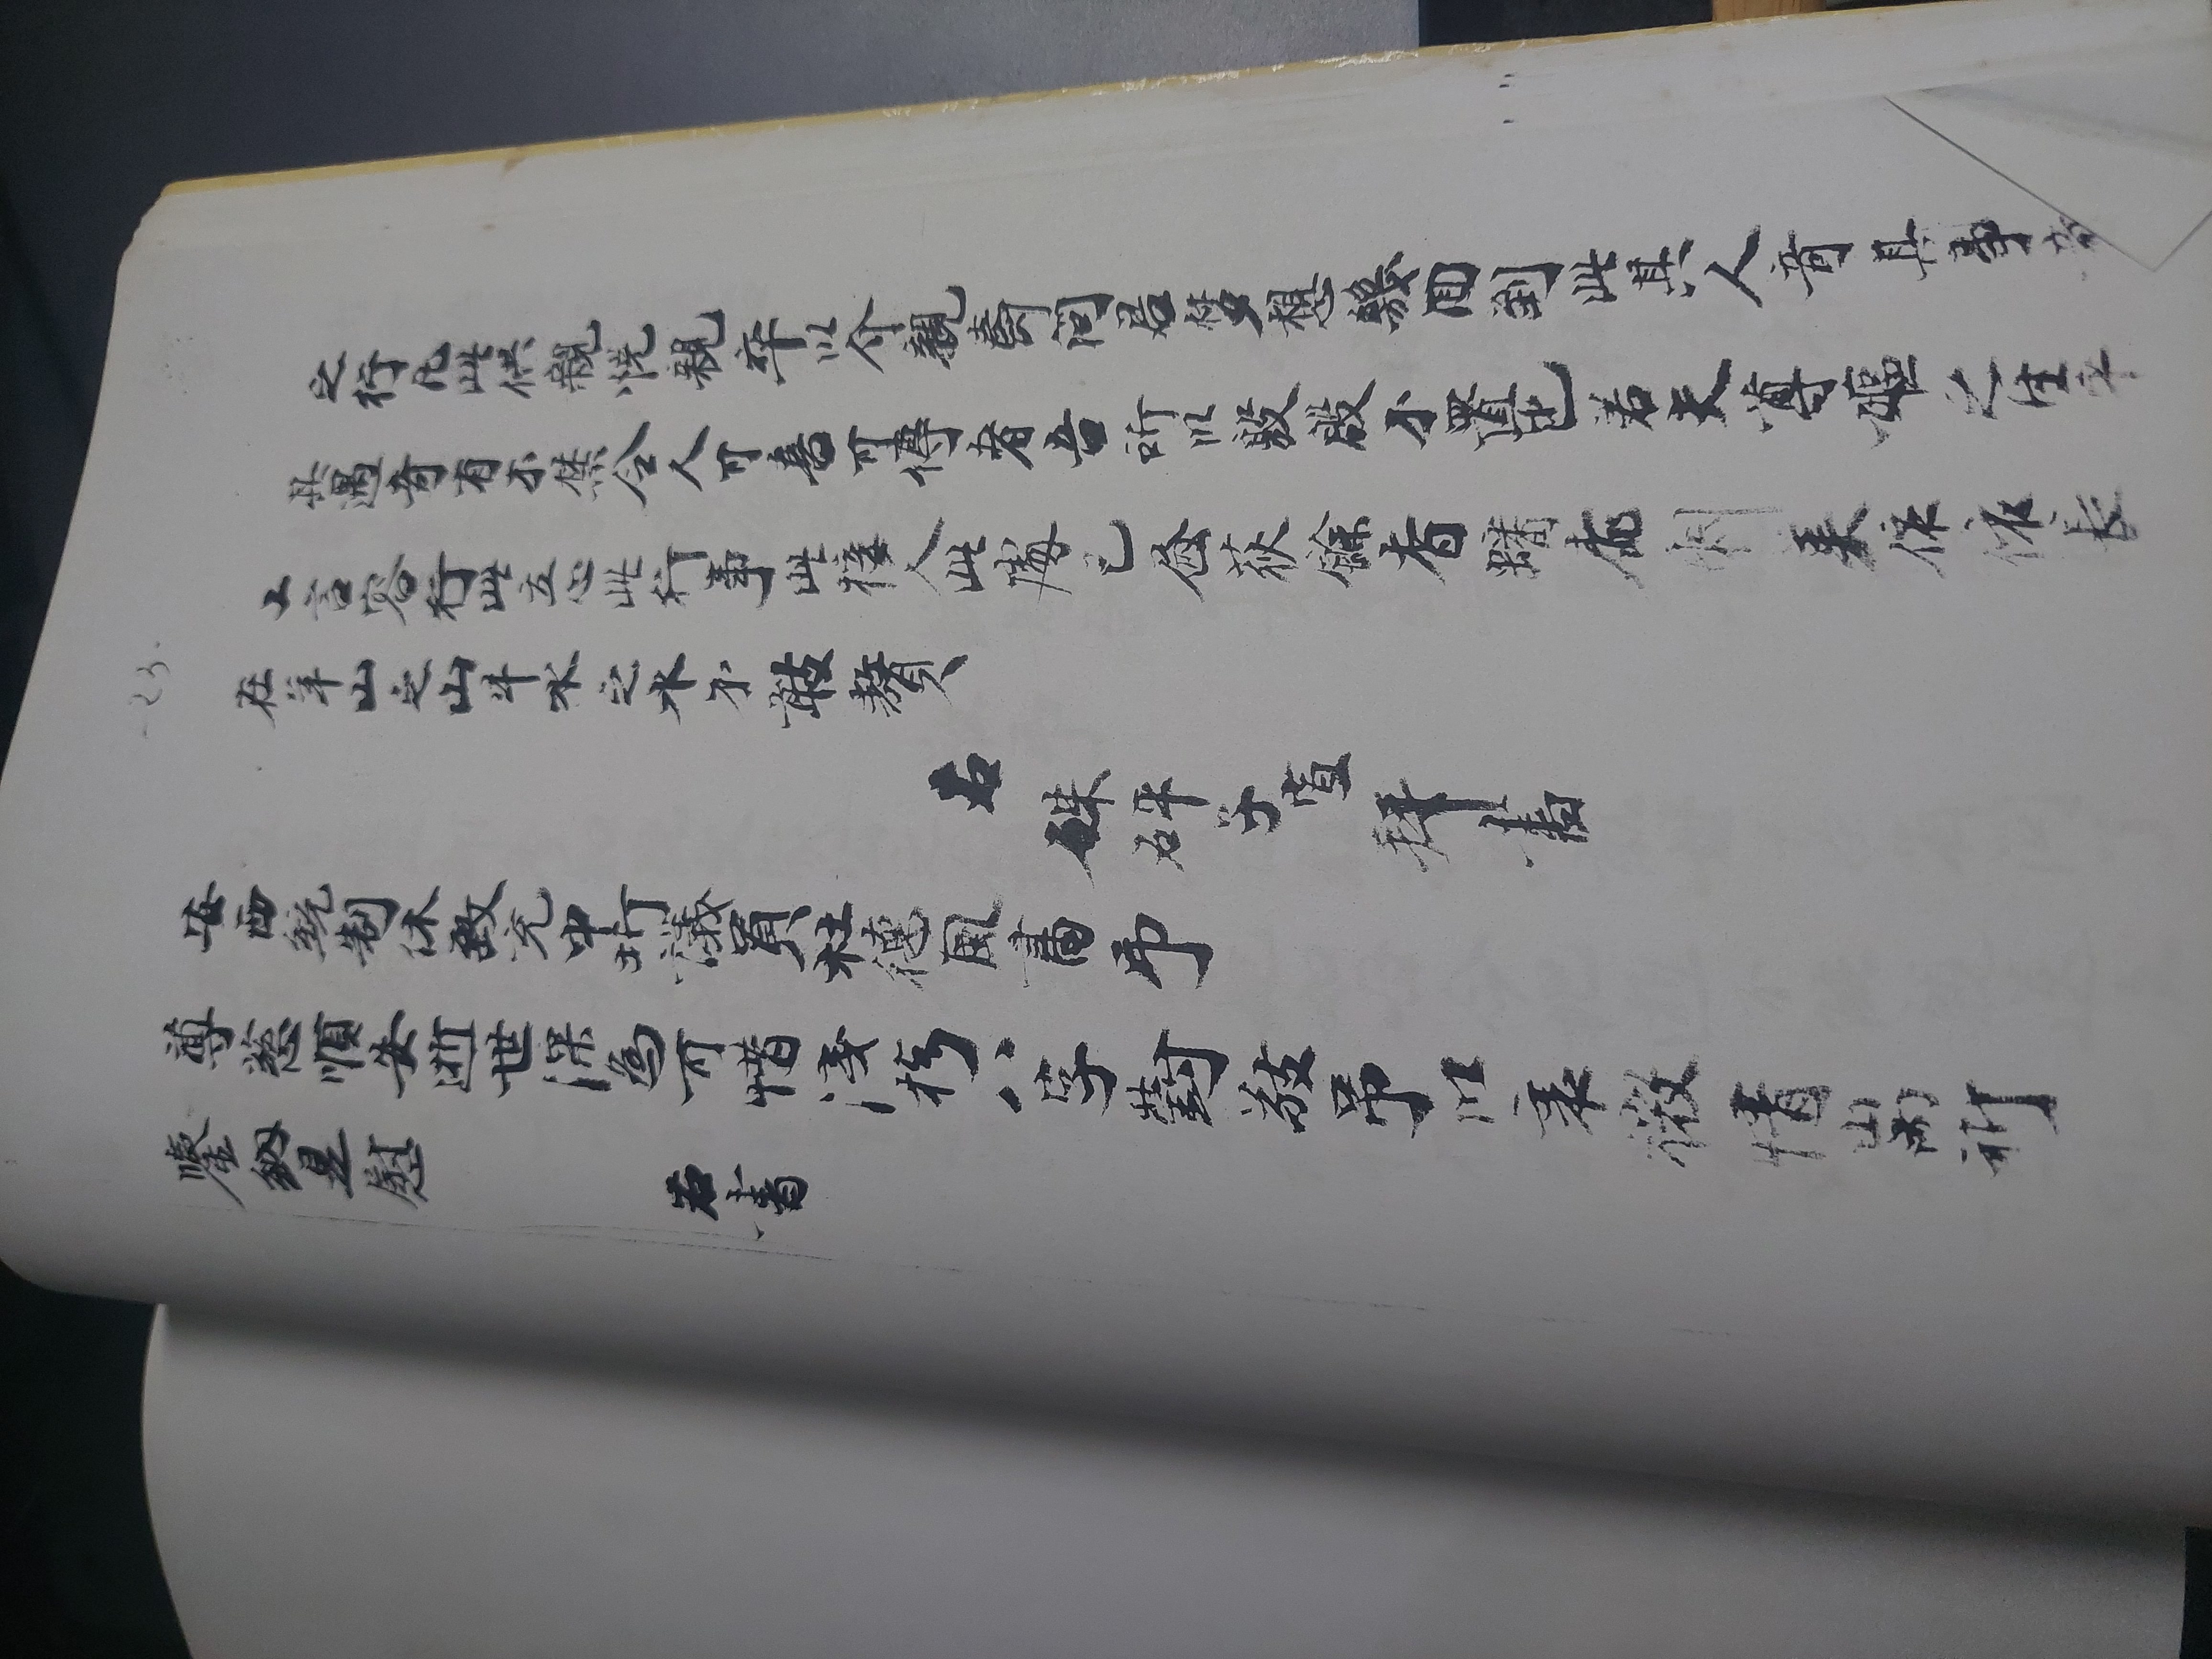 -23-
之行凡此供親悅親卒以介親壽問君夢想幾回到此其人奇其事奇
其遇奇有不禁令人可喜可傳者吾所以殷殷不置也若夫尊嫗之生平
工言容行此立心此行事此接人此處己區荻餘香蟠 美依依長
在羊山之山牛水之水不敢贅
右 硃砰子宣拜書
安西統制休致充中圻議員杜德風書弔
尊慈順安逝世深為可惜淺拷八字對敬弔以表微情尚祈
鑒納是慰
右書